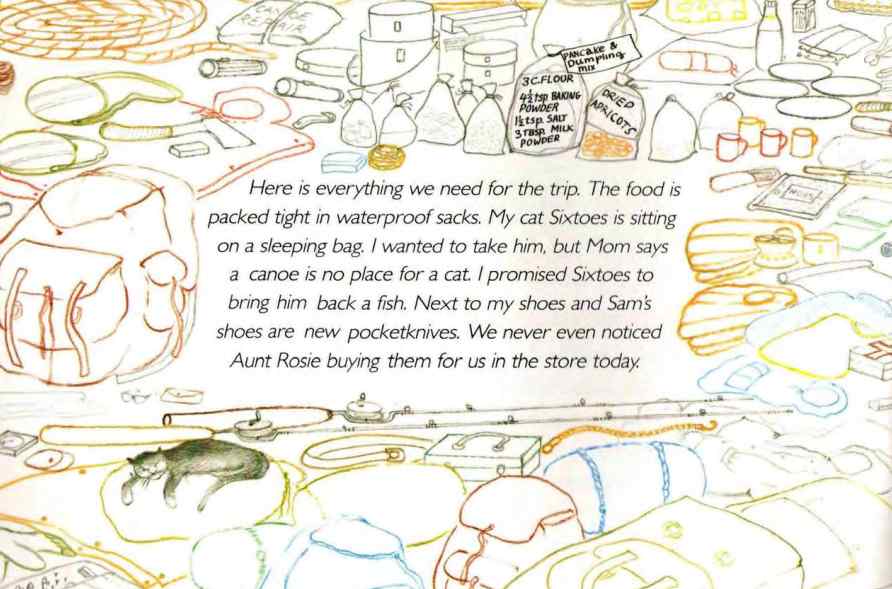 CANOE
REPAIR
PANCAKE &
Dumpling
MIX
3 C. FLOUR
4½ tsp BAKING
POWDER
1½ tsp. SALT
3 TBSP. MILK
POWDER
DRIED
APRICOTS
Here is everything we need for the trip. The food is
packed tight in waterproof sacks. My cat Sixtoes is sitting
on a sleeping bag. I wanted to take him, but Mom says
a canoe is no place for a cat. I promised Sixtoes to
bring him back a fish. Next to my shoes and Sam's
shoes are new pocketknives. We never even noticed
Aunt Rosie buying them for us in the store today.